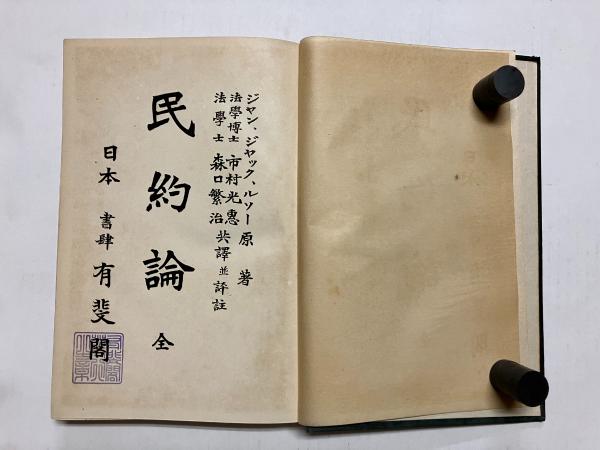 ジャン、ジャック、ルソー原著
法學博士 市村光惠
法學士 森口繁治 共譯並評註
民約論 全
日本 書肆 有斐閣